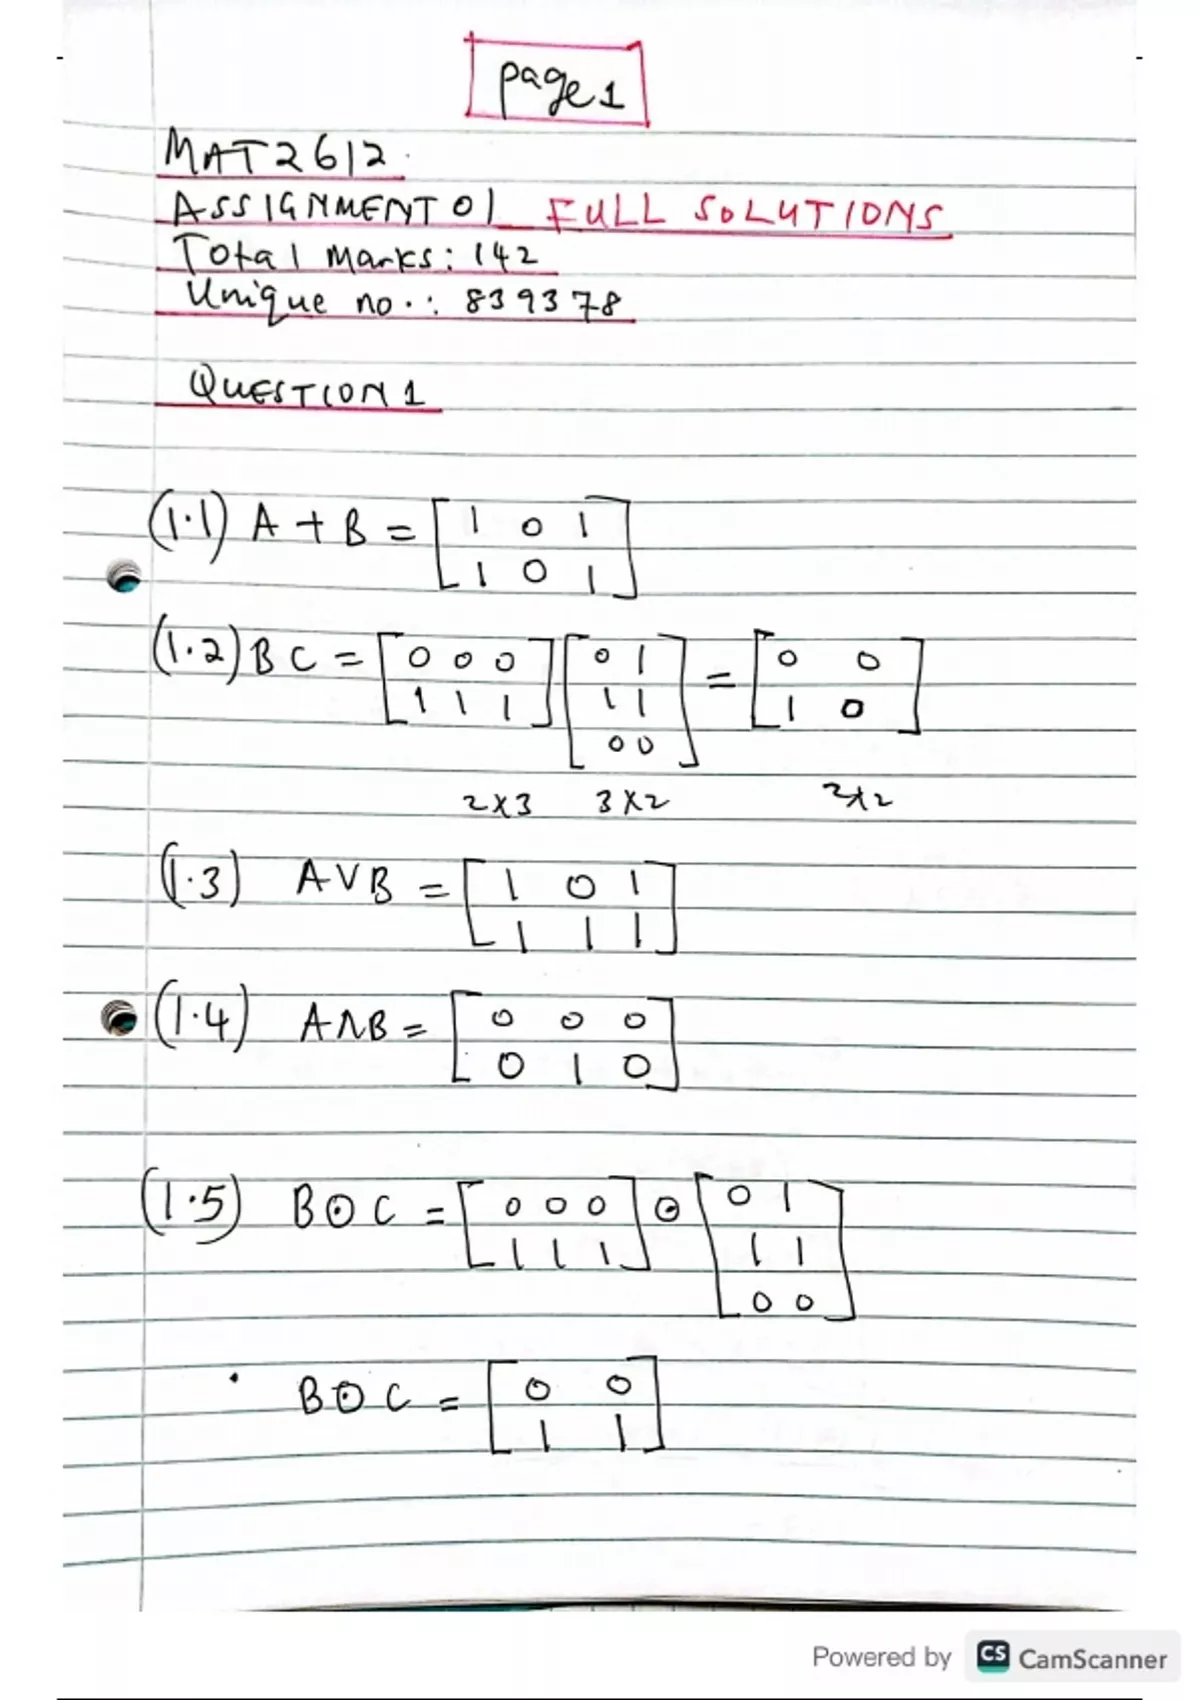 page 1
MAT2612
ASSIGNMENT 01 FULL SOLUTIONS
Total Marks: 142
Unique no.: 839378
QUESTION 1
(1.1) A + B = [ 1 0 1
1 0 1 ]
(1.2) BC = [ 0 0 0 ] [ 0 1 ] = [ 0 0 ]
[ 1 1 1 ] [ 1 1 ] [ 1 0 ]
[ 0 0 ]
2×3 3×2 2×2
(1.3) A∨B = [ 1 0 1
1 1 1 ]
(1.4) A∧B = [ 0 0 0
0 1 0 ]
(1.5) B⊙C = [ 0 0 0 ] ⊙ [ 0 1 ]
[ 1 1 1 ] [ 1 1 ]
[ 0 0 ]
B⊙C = [ 0 0
1 1 ]
Powered by CS CamScanner